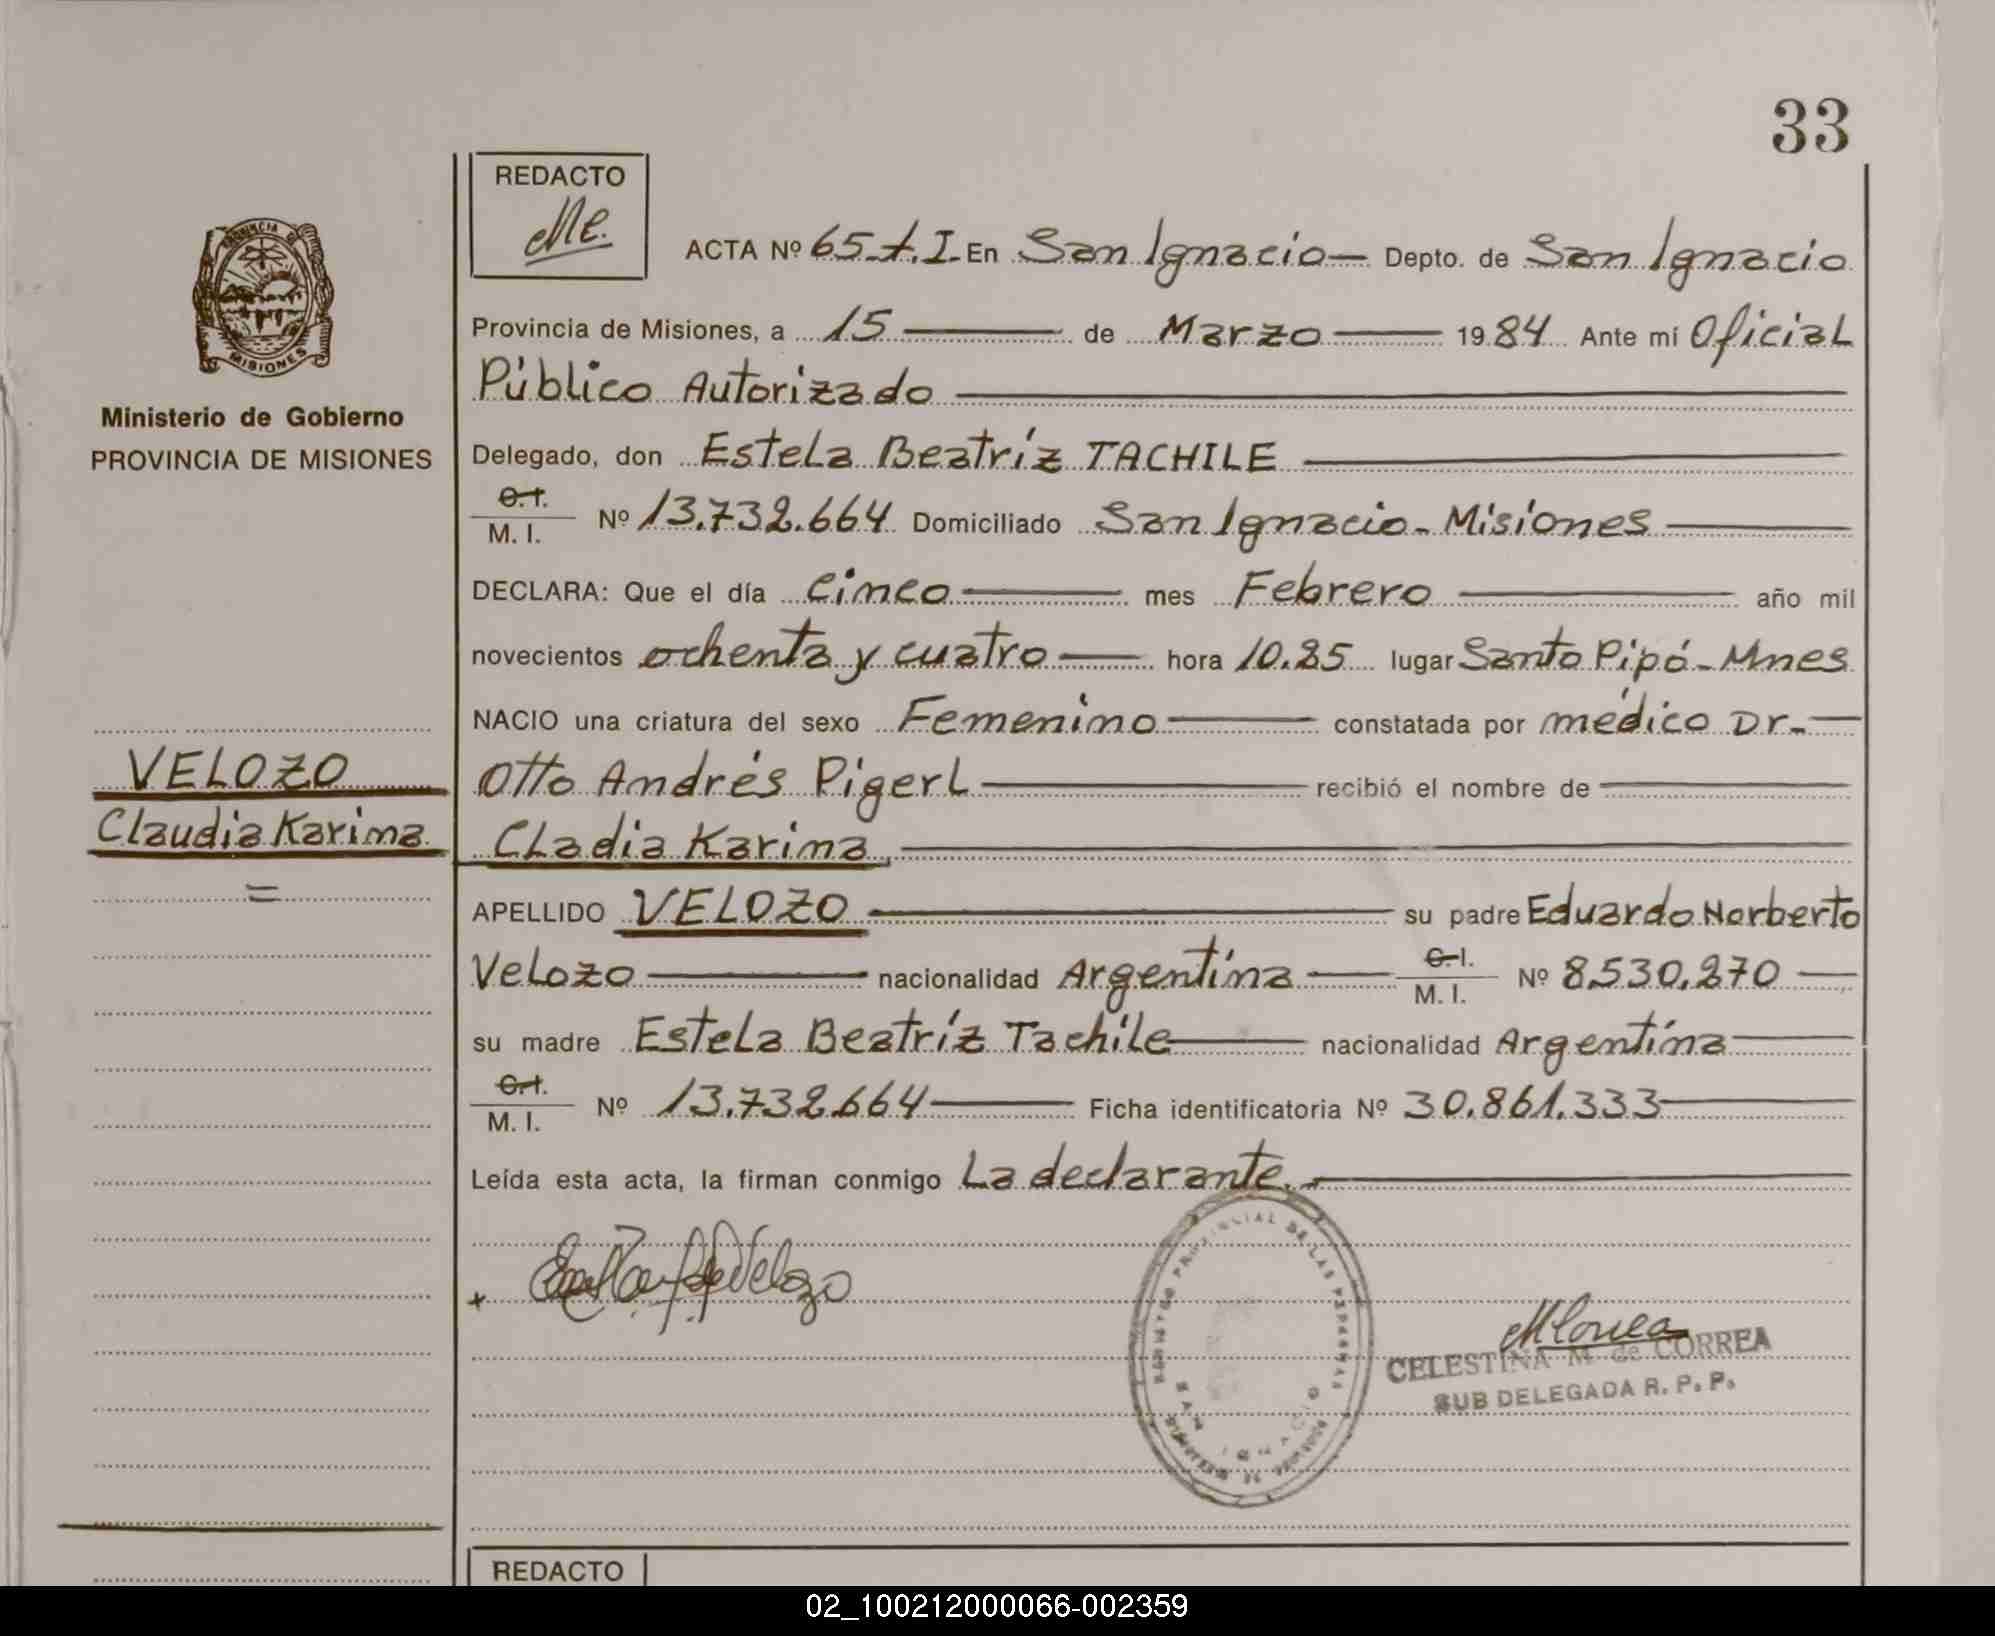 33
REDACTO
Me.
ACTA Nº 65-t.I- En San Ignacio- Depto. de San Ignacio
PROVINCIA DE
MISIONES
Provincia de Misiones, a 15 de Marzo 1984 Ante mí Oficial
Público Autorizado
Ministerio de Gobierno
PROVINCIA DE MISIONES
Delegado, don Estela Beatríz TACHILE
C.I.
M. I. Nº 13.732.664 Domiciliado San Ignacio - Misiones
DECLARA: Que el día Cinco mes Febrero año mil
novecientos ochenta y cuatro hora 10.25 lugar Santo Pipó - Mnes
NACIO una criatura del sexo Femenino constatada por médico Dr.-
VELOZO
Otto Andrés Pigerl recibió el nombre de
Claudia Karina
=
Cladia Karina
APELLIDO VELOZO su padre Eduardo Norberto
Velozo nacionalidad Argentina C.I. M. I. Nº 8.530.270
su madre Estela Beatríz Tachile nacionalidad Argentina
C.I.
M. I. Nº 13.732.664 Ficha identificatoria Nº 30.861.333
Leída esta acta, la firman conmigo La declarante.
PROVINCIAL DE LAS PERSONAS
SAN IGNACIO
+ de Velozo
MCorrea
CELESTINA M. de CORREA
SUB DELEGADA R. P. P.
REDACTO
02_100212000066-002359